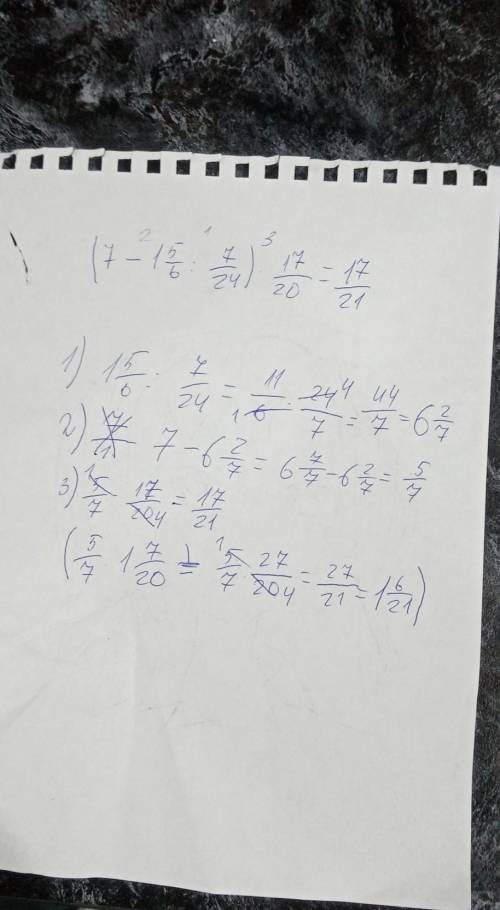 (7 - 1 5/6 : 7/24) 17/20 = 17/21
1) 1 5/6 : 7/24 = 11/6 · 24/7 = 44/7 = 6 2/7
2) 7 - 6 2/7 = 6 7/7 - 6 2/7 = 5/7
3) 5/7 17/204 = 17/21
(5/7 · 1 7/20 = 5/7 27/204 = 27/21 = 1 6/21)